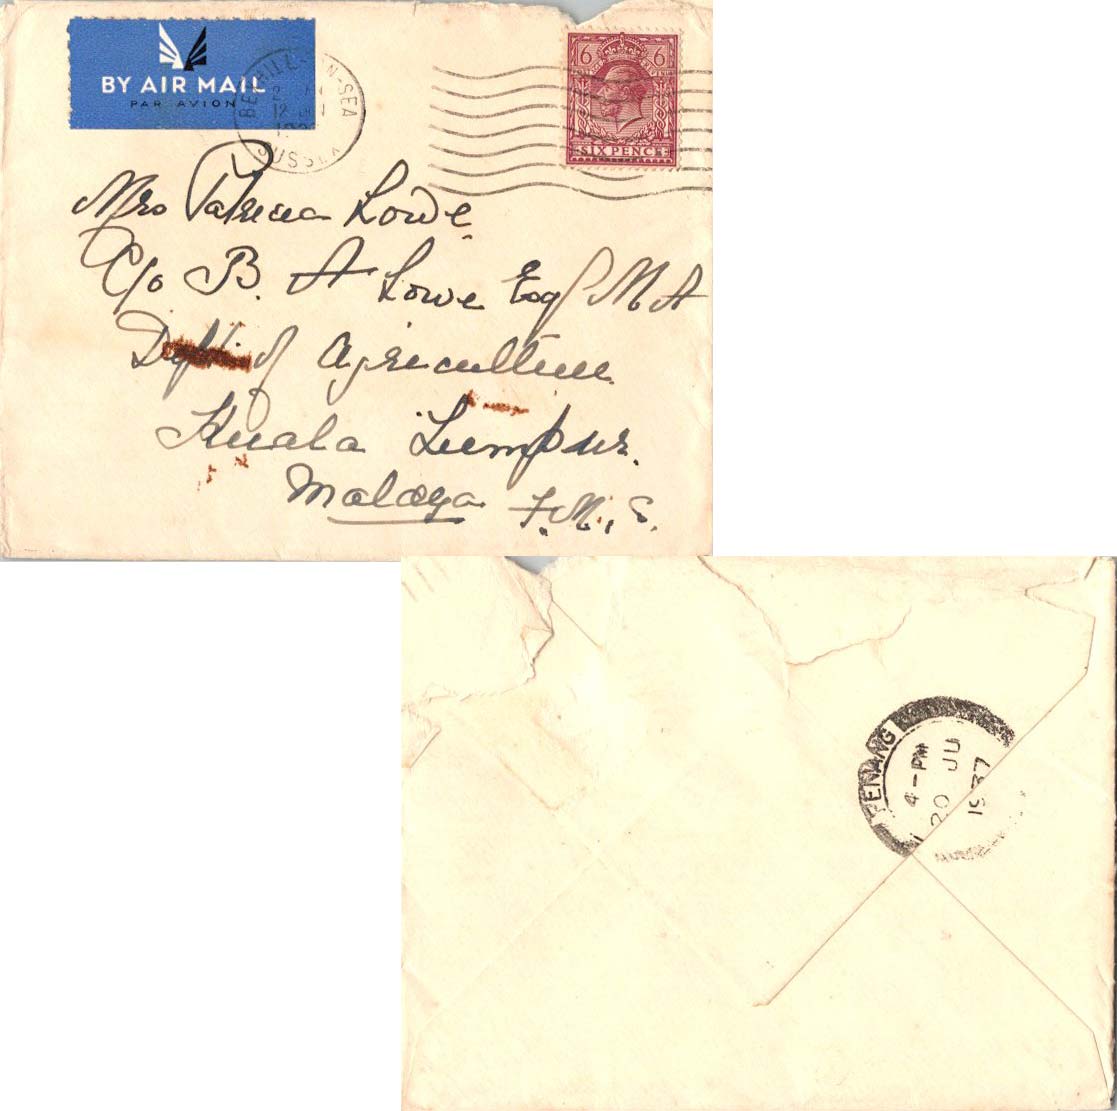 BY AIR MAIL
PAR AVION
BEXHILL-ON-SEA
12 JU
SUSSEX
6 6
SIX PENCE
Mrs Patricia Lowe
C/o B. A Lowe Esq M A
Dept of Agriculture
Kuala Lumpur.
Malaya F.M.S.
PENANG
4-PM
20 JU
1937